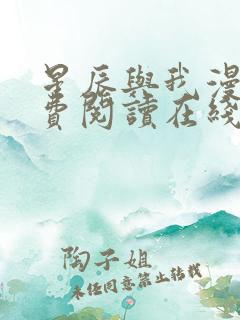 星辰與我漫
費閱讀在綫
陶子姐
未經同意禁止轉載